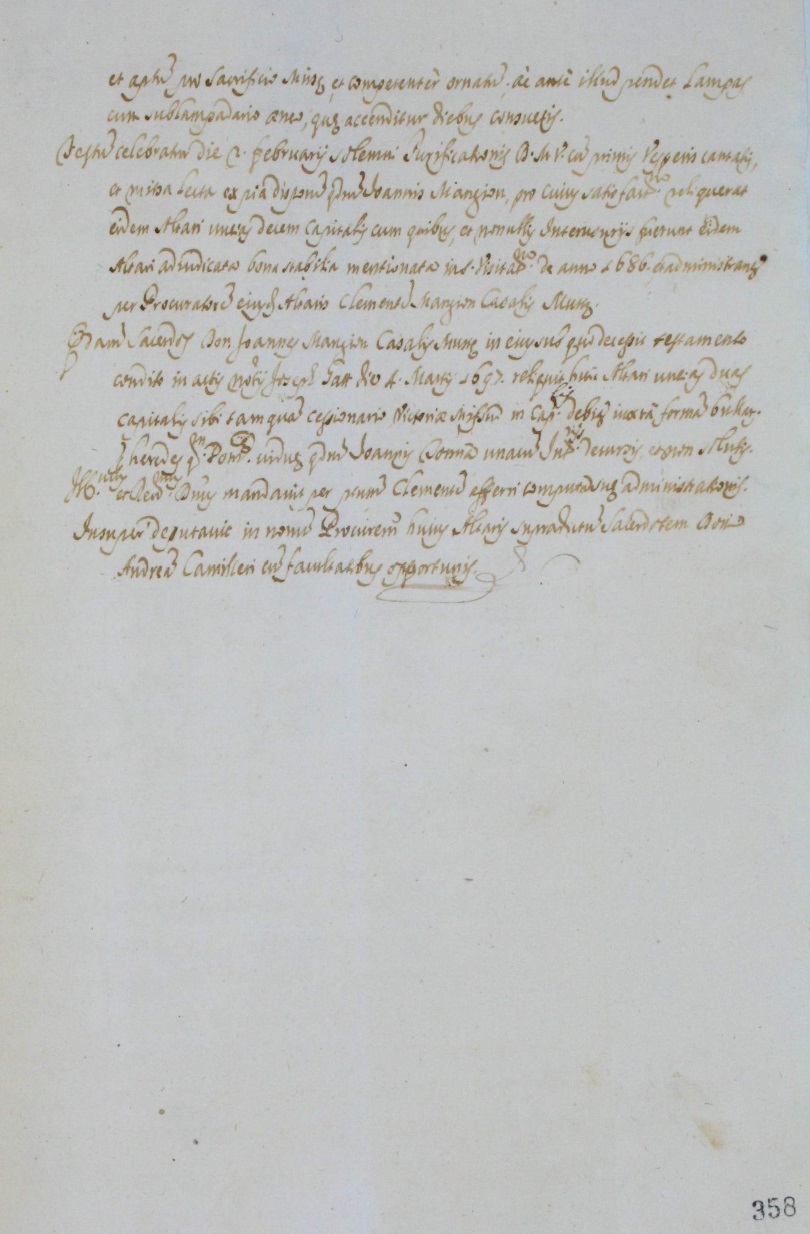 et aptū pro sacrificio Missę, et competenter ornatū. ac ante illud pendet Lampas
cum sublampadario æneo, quę accenditur diebus consuetis.
Festū celebratur die 2. februarij solemni Purificationis B. M. V. cū primis Vesperis cantatis,
et missa lecta ex pia dispone qdm Joannis Mangion, pro cuius satisfact.ne reliquerat
eidem Altari uncias decem capitalis cum quibus, et nonullis Interusurijs fuerunt eidem
Altari adiudicata bona stabilia mentionata in s. Visita.ne de anno 1686. et administrant.
per Procuratorē eiusd. Altaris Clementē Mangion Casalis Muxę.
Sacerdos Don Joannes Mangion Casalis Muxę in eius sub quo decessit testamento
condito in actis Notrij Joseph Gatt die 4. Martij 1697. reliquit huic Altari uncias duas
capitalis sibi tamquā cessionario Victoriæ Mifsud in Cap. debitis iuxtā formā bullę.
heredes viduę qdm Joannis unacū Int. decursis, et non solutis.
Ill. et Rev. Dnus mandavit per prium Clementē afferri computū suę administrationis.
Insuper deputavit in novū Procurem huius Altaris supradictū Sacerdotem Don
Andreā Camilleri cū facultatibus opportunis.
358